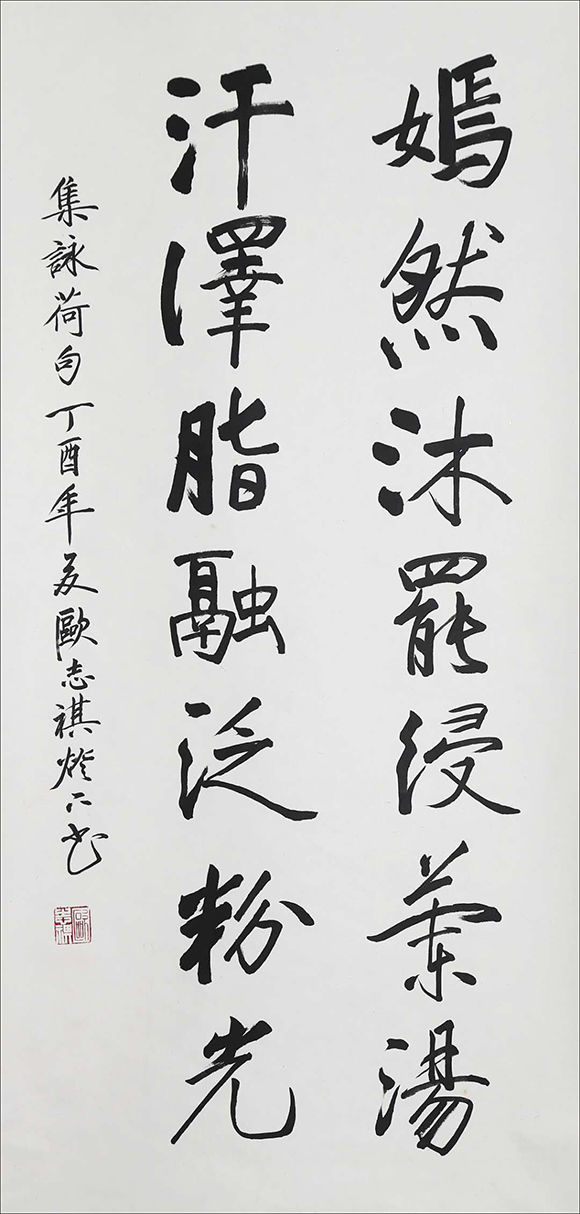 嫣然沐罷浸蘭湯
汗澤脂融泛粉光
集詠荷句丁酉年夏歐志祺燈下書